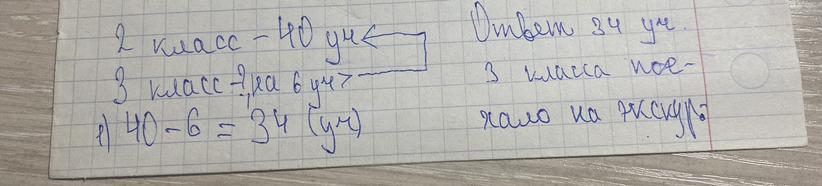 2 класс - 40 уч
3 класс - ?, на 6 уч >
1) 40 - 6 = 34 (уч)
Ответ 34 уч.
3 класса пое-
хало на экскур.